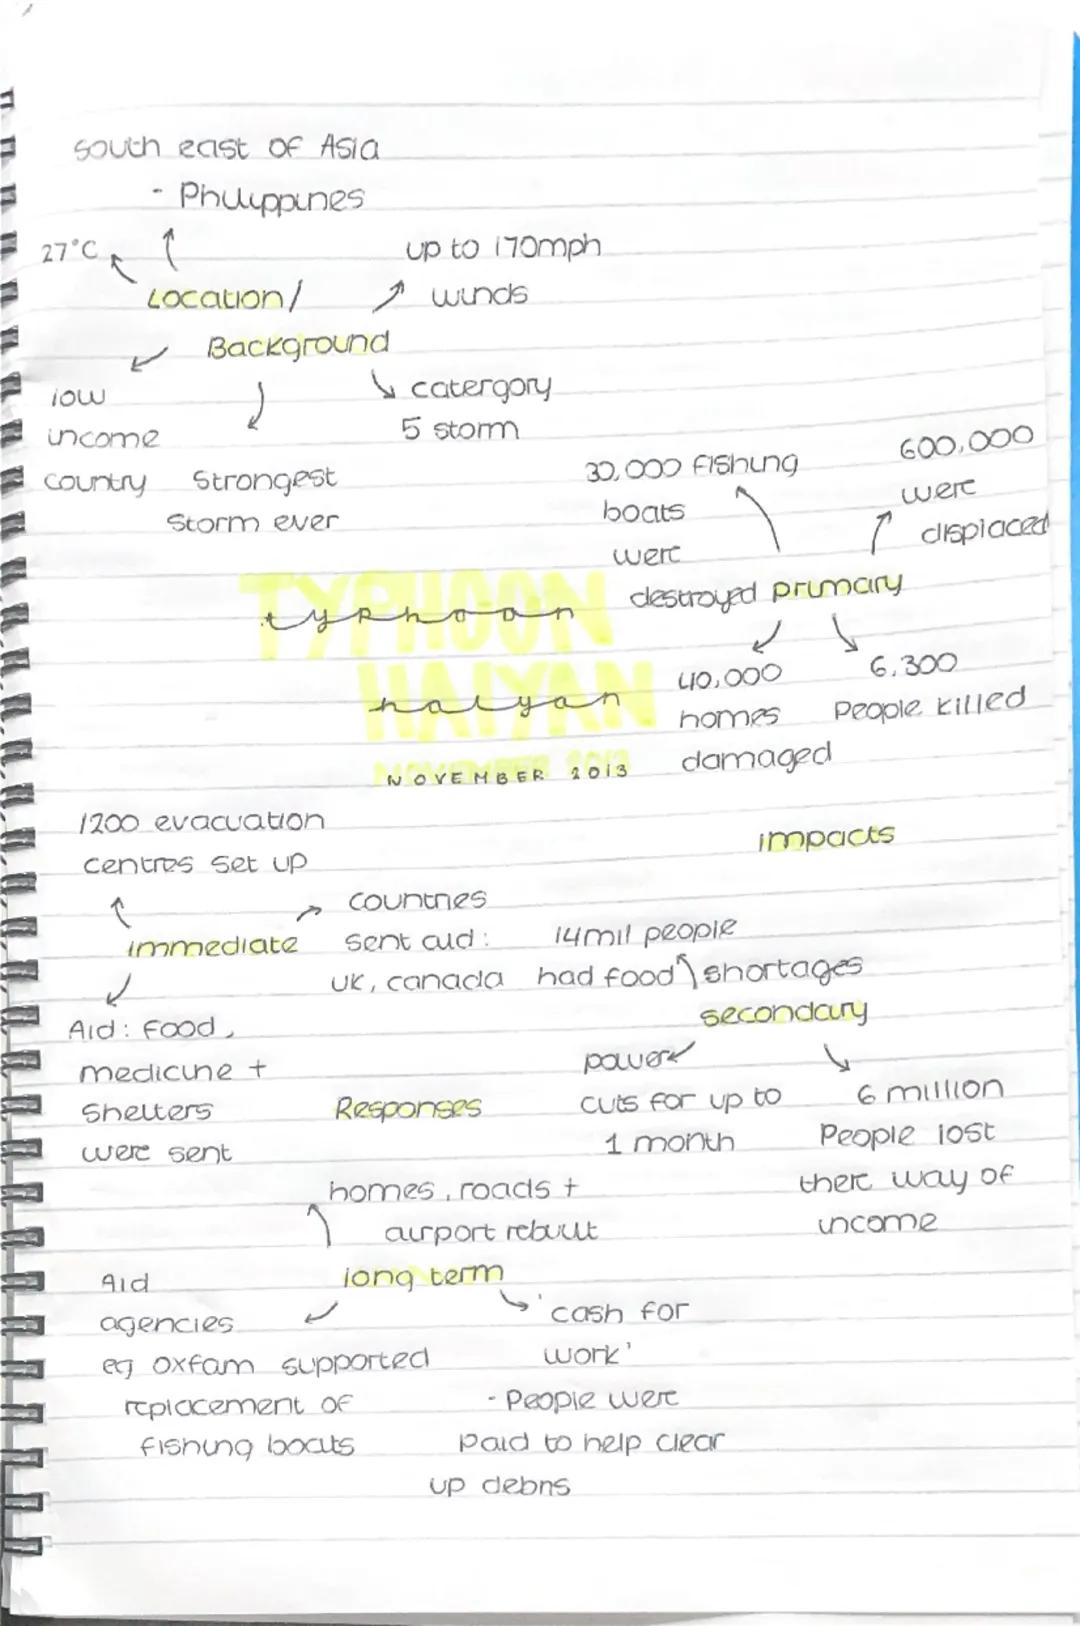 south east of Asia
- Philippines
27°C
Location/
Background
up to 170mph
winds
catergory
5 storm
low
income
country
Strongest
Storm ever
30,000 fishing
boats
were
destroyed
600,000
were
displaced
primary
40,000
homes
damaged
6,300
People killed
TYPHOON
HAIYAN
NOVEMBER 2013
typhoon
haiyan
NOVEMBER 2013
impacts
1200 evacuation
centres set up
immediate
countries
sent aid:
UK, canada
Aid: food,
medicine +
Shelters
were sent
14mil people
had food shortages
secondary
power
cuts for up to
1 month
6 million
People lost
there way of
income
Responses
homes, roads +
airport rebuilt
long term
Aid
agencies
eg oxfam supported
replacement of
fishing boats
'cash for
work'
- People were
paid to help clear
up debris